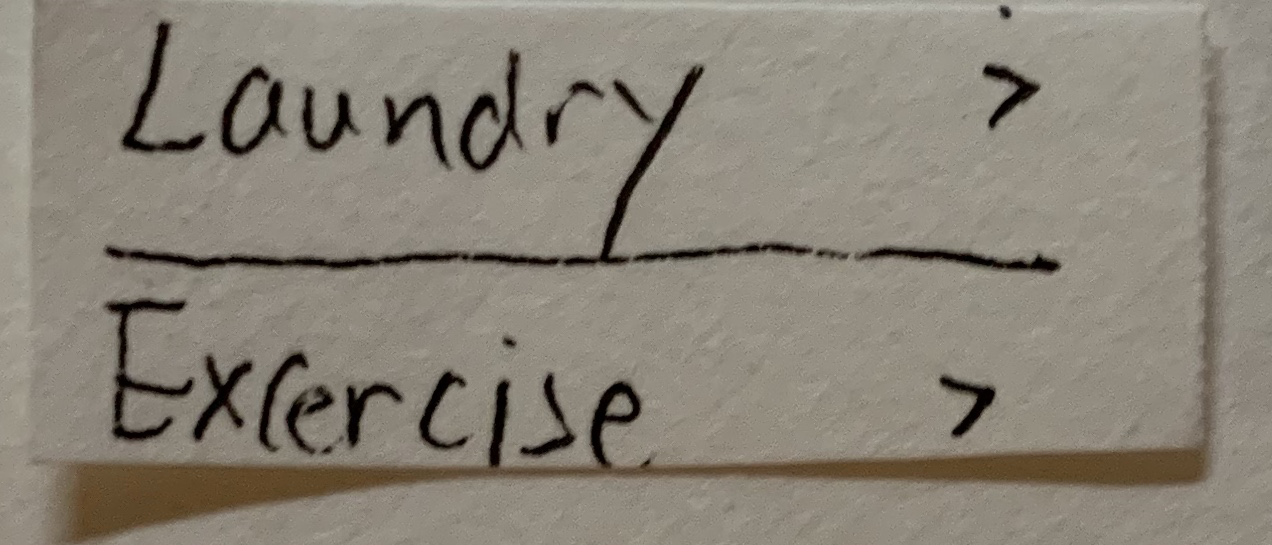 Laundry >
Excercise >